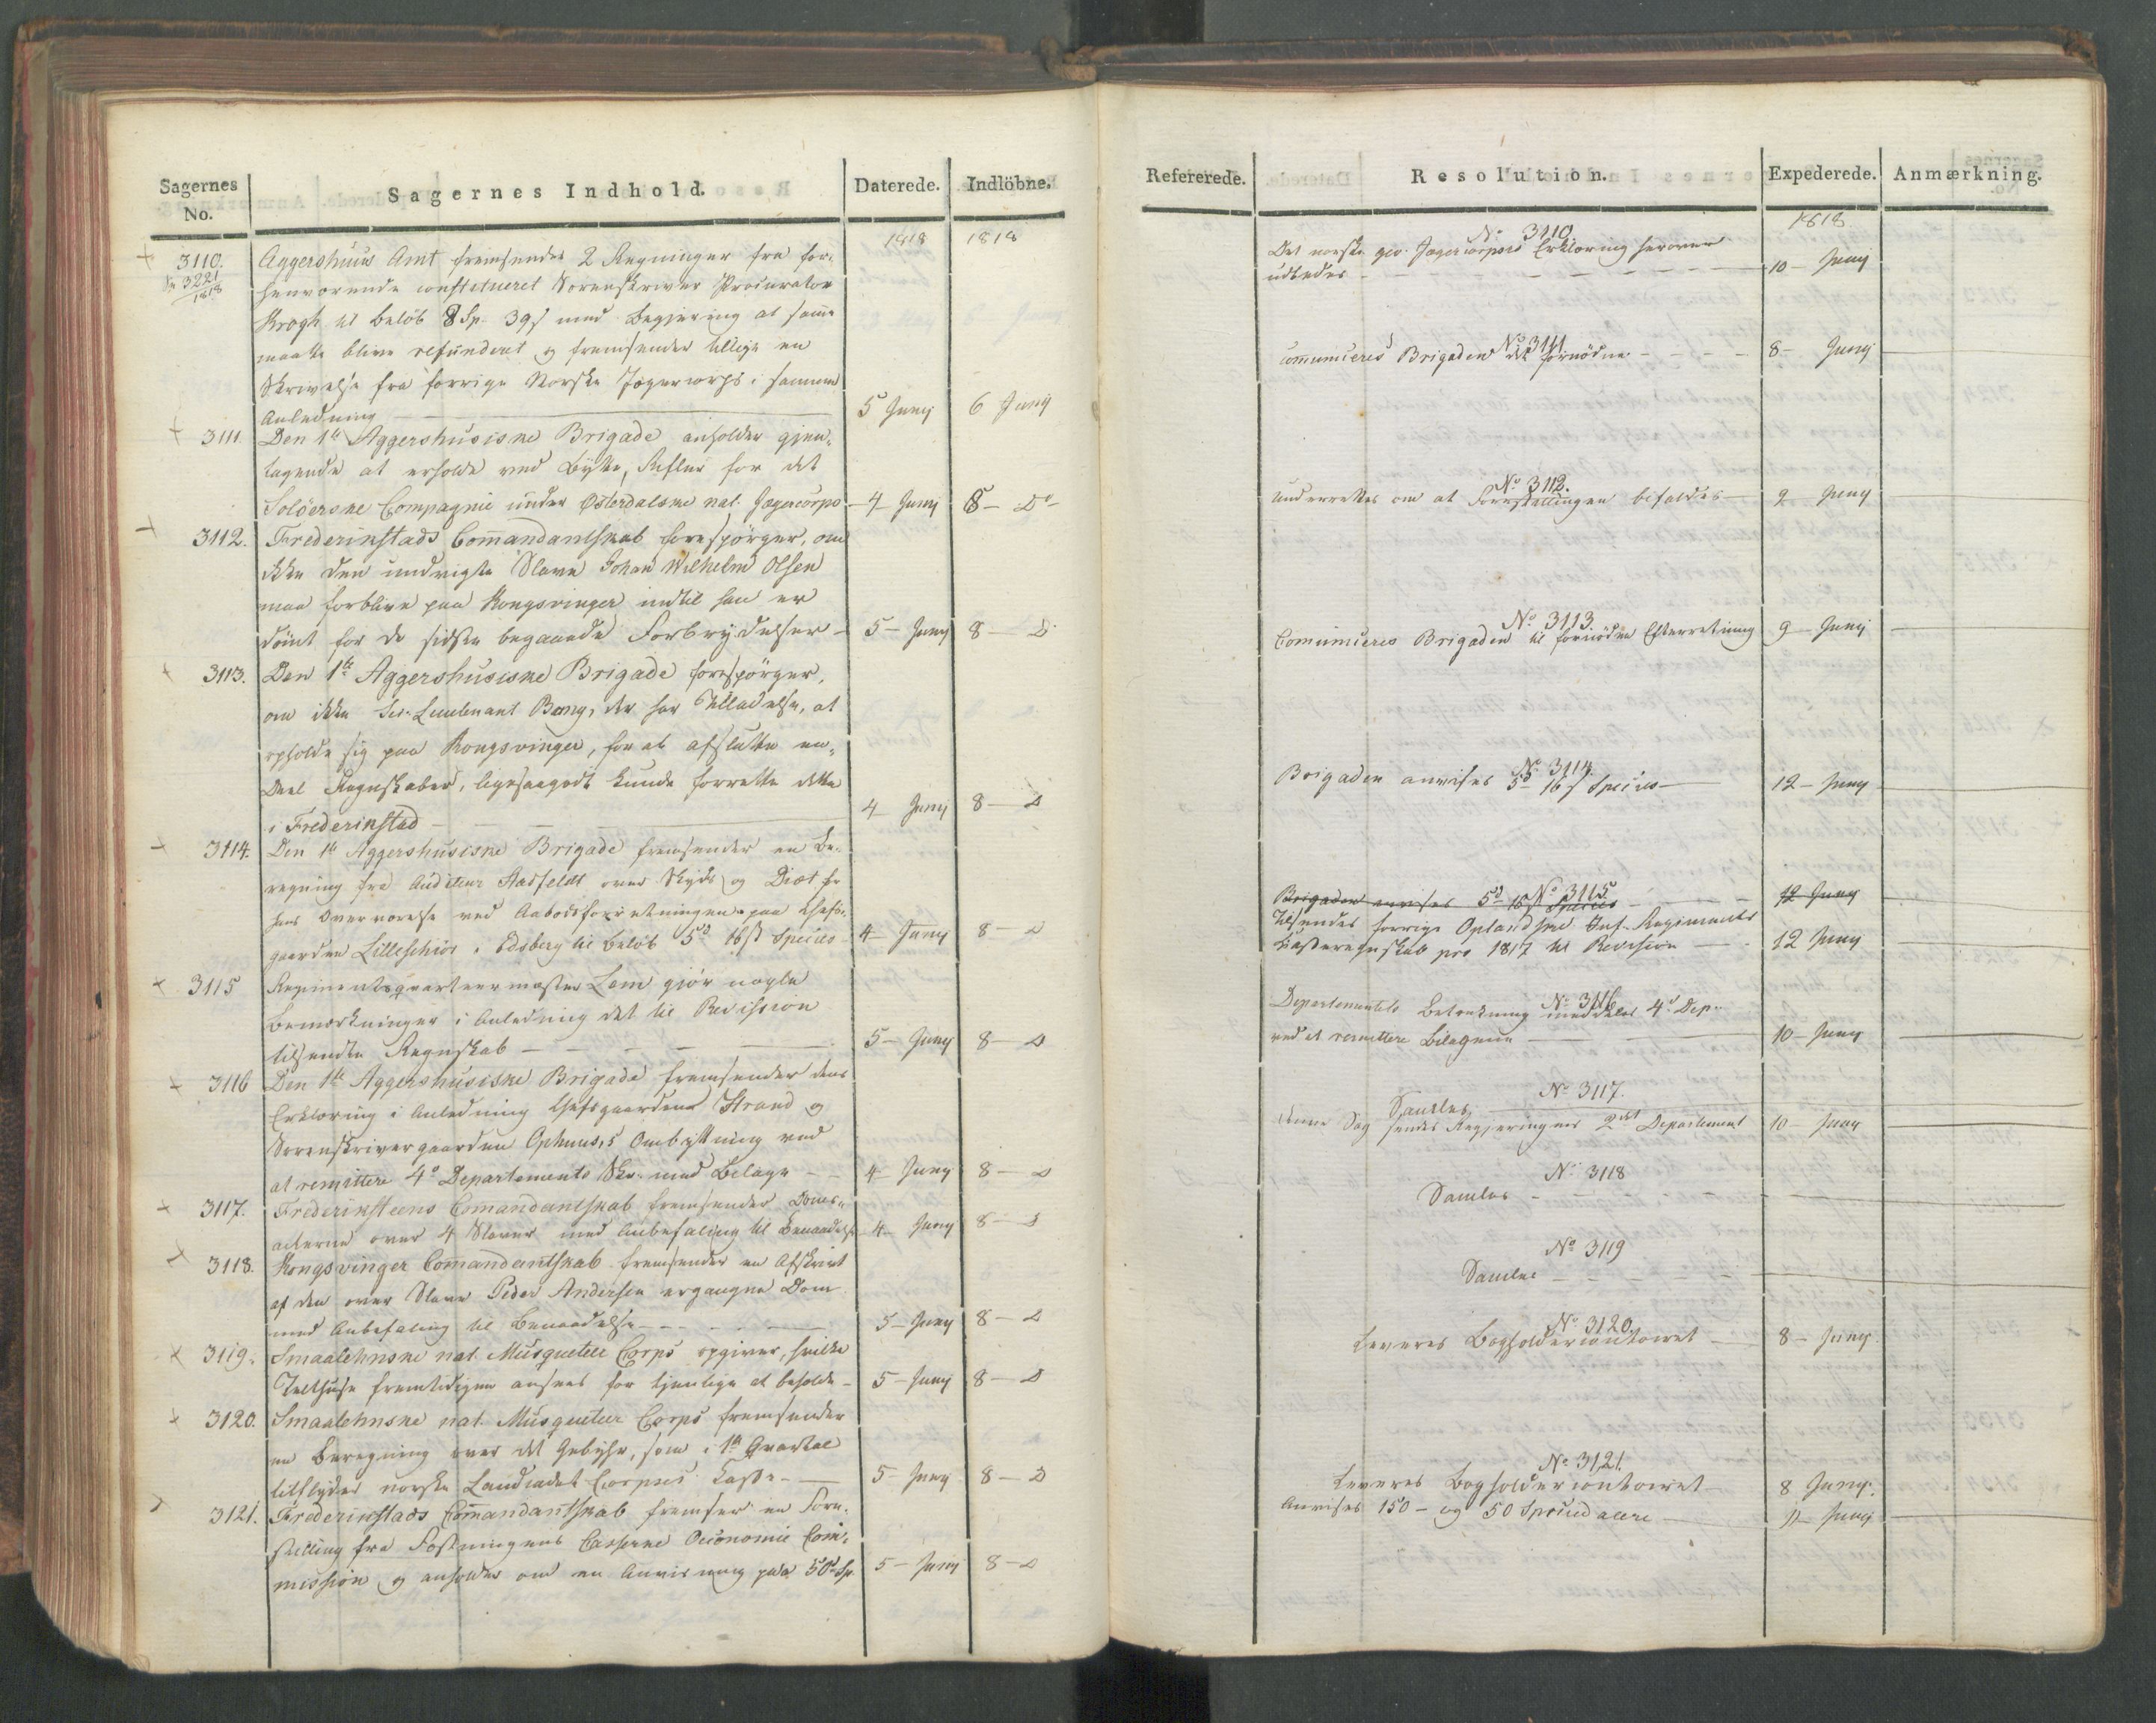 Sagernes
No.
Sagernes Indhold.
Daterede.
Indlöbne.
1818
1818
3110.
3221
1818
Aggershuus Amt fremsender 2 Regninger fra for-
henværende constitueret Sorenskriver Procurator
Krogh til Beløb 8 Sp. 39 s med Begjering at samme
maatte blive refunderet og fremsender tillige en
Skrivelse fra forrige Norske Jægercorps i samme
Anledning
5 Juny
6 Juny
3111.
Den 1ste Aggershusiske Brigade anholder gjen-
tagende at erholde ved Bytte, Rifler for det
Solöerske Compagnie under Østerdalske nat. Jægercorps
4 Junj
8 - Do
3112.
Frederikstads Commandantskab forespörger, om
ikke den undvigte Slave Johan Wilhelm Olsen
maa forblive paa Kongsvinger indtil han er
dömt for de sidste begaaede Forbrydelser -
5 - Juny
8 - D
3113.
Den 1ste Aggershusiske Brigade forespörger,
om ikke Sec. Lieutenant Bang, der har Tilladelse, at
opholde sig paa Kongsvinger, for at afslutte en-
Deel Regnskaber, ligesaagodt kunde forrette dette
i Frederikstad
4 Juny
8 - D
3114.
Den 1ste Aggershusiske Brigade fremsender en Be-
regning fra Auditeur Stadfeldt over Skyds og Diæt for
hans Overværelse ved Aabodsforretningen paa Chefs-
gaarden Lilleschiör i Edsberg til Beløb 5 d 16 s Species
4 - Juny
8 - D
3115
Regimentsqvarteermester Lem gjör nogle
Bemærkninger i Anledning det til Revission
tilsendte Regnskab
5 - Juny
8 - D
3116
Den 1ste Aggershusiske Brigade fremsender dens
Erklæring i Anledning Chefsgaarden Strand og
Sorenskrivergaarden Ophuus's Ombytning ved
at remittere 4de Departements Skr. med Bilage
4 - Juny
8 - D
3117.
Frederiksteens Comandantskab fremsender Doms-
acterne over 4 Slaver med Anbefaling til Benaadelse
4 - Juny
8 - D
3118.
Kongsvinger Commandantskab fremsender en Afskrivt
af den over Slave Peder Andersen ergangne Dom
med Anbefaling til Benaadelse
5 - Juny
8 - D
3119.
Smaalehnske nat. Musqueteer Corps opgiver, hvilke
Telthuse fremtidigen ansees for tjenlige at beholde
5 - Junj
8 - D
3120.
Smaalehnske nat. Musqueteer Corps fremsender
en Beregning over det Gebyhr, som i 1ste Qvartal
tilflyder norske Landcadet Corpses Casse
5 - Juny
8 - D
3121.
Frederikstads Commandantskab fremser en Fore-
stilling fra Fæstningens Casserne Oeconomie Com-
mission og anholder om en Anvisning paa 50 d Sp.
5 - Junj
8 - D
Refererede.
Resolution.
Expederede.
Anmærkning.
1818.
No 3110.
Det norske gev. Jægercorpses Erklæring herover
udbedes
10 - Juny
No 3111.
communiceres Brigaden det fornödne
8 - Juny
No 3112.
underrettes om at Forestillingen bifaldes
9 Juny
No 3113.
Comuniceres Brigaden til fornöden Efterretning
9 - Junj
No 3114.
Brigaden anvises 5 d 16 s Species
12 - Juny
No 3115.
Brigaden anvises 5 d 16 s Species
12 Juny
Tilsendes forrige Oplandske Inf. Regiments
Casseregnskab pro 1817 til Revision
12 Juny
No 3116
Departementets Betænkning meddeles 4d Dep.
ved at remittere Bilagene
10 - Juny
No 3117.
Samles
Denne Sag sendes Regjeringens 2det Departement
10 - Juny
No 3118
Samles
No 3119
Samles
No 3120.
Leveres Bogholdercontoiret
8 - Juny
No 3121.
Leveres Bogholdercontoiret
8 Juny.
Anvises 150 - og 50 Speciedalere
11 - Juny